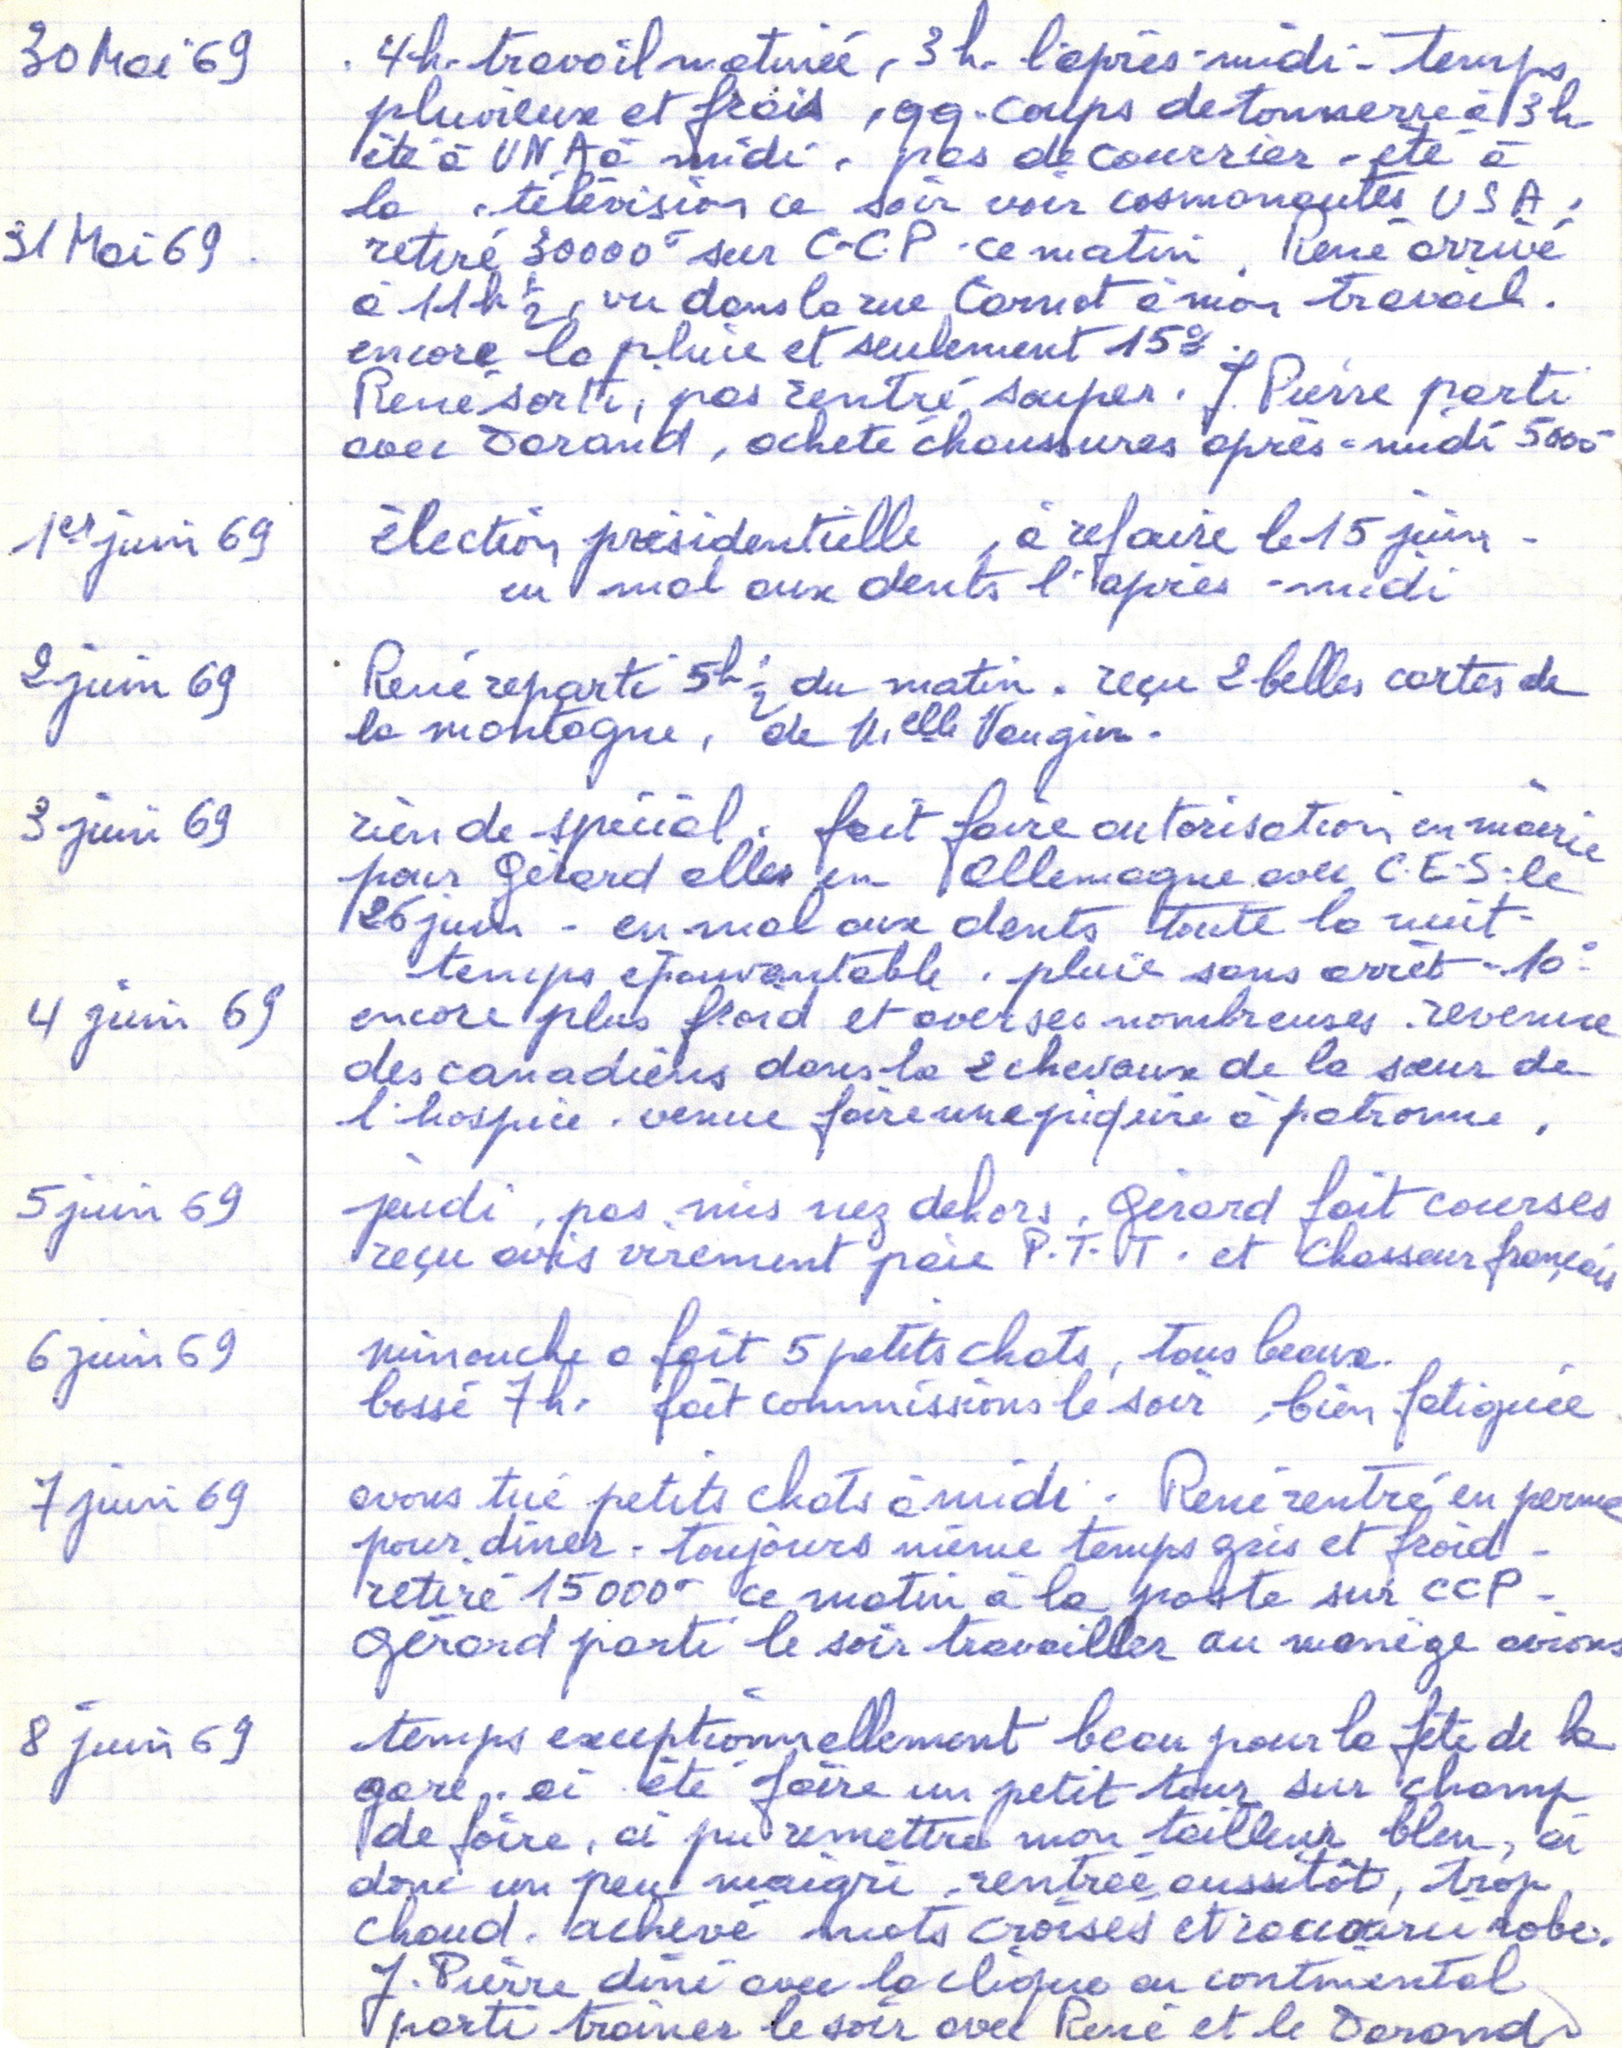 30 Mai 69 . 4h. travail matinée, 3h. l'après-midi - temps
pluvieux et frais, qq. coups de tonnerre à 3h
été à UNA à midi. pas de courrier - été à
la télévision ce soir voir cosmonautes USA.
31 Mai 69. retiré 30000 sur C.C.P. ce matin. René arrivé
à 11h ½, vu dans la rue Carnot à mon travail.
encore la pluie et seulement 15°.
René sorti, pas rentré souper. J. Pierre parti
avec Dorand, acheté chaussures après-midi 5000
1er juin 69 élection présidentielle, à refaire le 15 juin -
eu mal aux dents l'après-midi
2 juin 69 René reparti 5h ½ du matin. reçu 2 belles cartes de
la montagne, de Melle Vaugin.
3 juin 69 rien de spécial. fait faire autorisation en mairie
pour Gérard aller en Allemagne avec C.E.S. le
26 juin - eu mal aux dents toute la nuit -
temps épouvantable. pluie sans arrêt - 10°
4 juin 69 encore plus froid et averses nombreuses. revenue
des canadiens dans la 2 chevaux de la sœur de
l'hospice. venue faire une piqûre à patronne.
5 juin 69 jeudi, pas mis nez dehors. Gérard fait courses
reçu avis virement paie P.T.T. et Chasseur français
6 juin 69 minouche a fait 5 petits chats, tous beaux.
bossé 7h. fait commissions le soir, bien fatiguée
7 juin 69 avons tué petits chats à midi. René rentré en perme
pour dîner - toujours même temps gris et froid -
retiré 15000 ce matin à la poste sur CCP -
Gérard parti le soir travailler au manège avions
8 juin 69 temps exceptionnellement beau pour la fête de la
gare. ai été faire un petit tour sur champ
de foire, ai pu remettre mon tailleur bleu, ai
donc un peu maigri. rentrée aussitôt, trop
chaud. achevé mots croisés et raccourci robe.
J. Pierre dîné avec la clique au continental
parti traîner le soir avec René et le Dorand